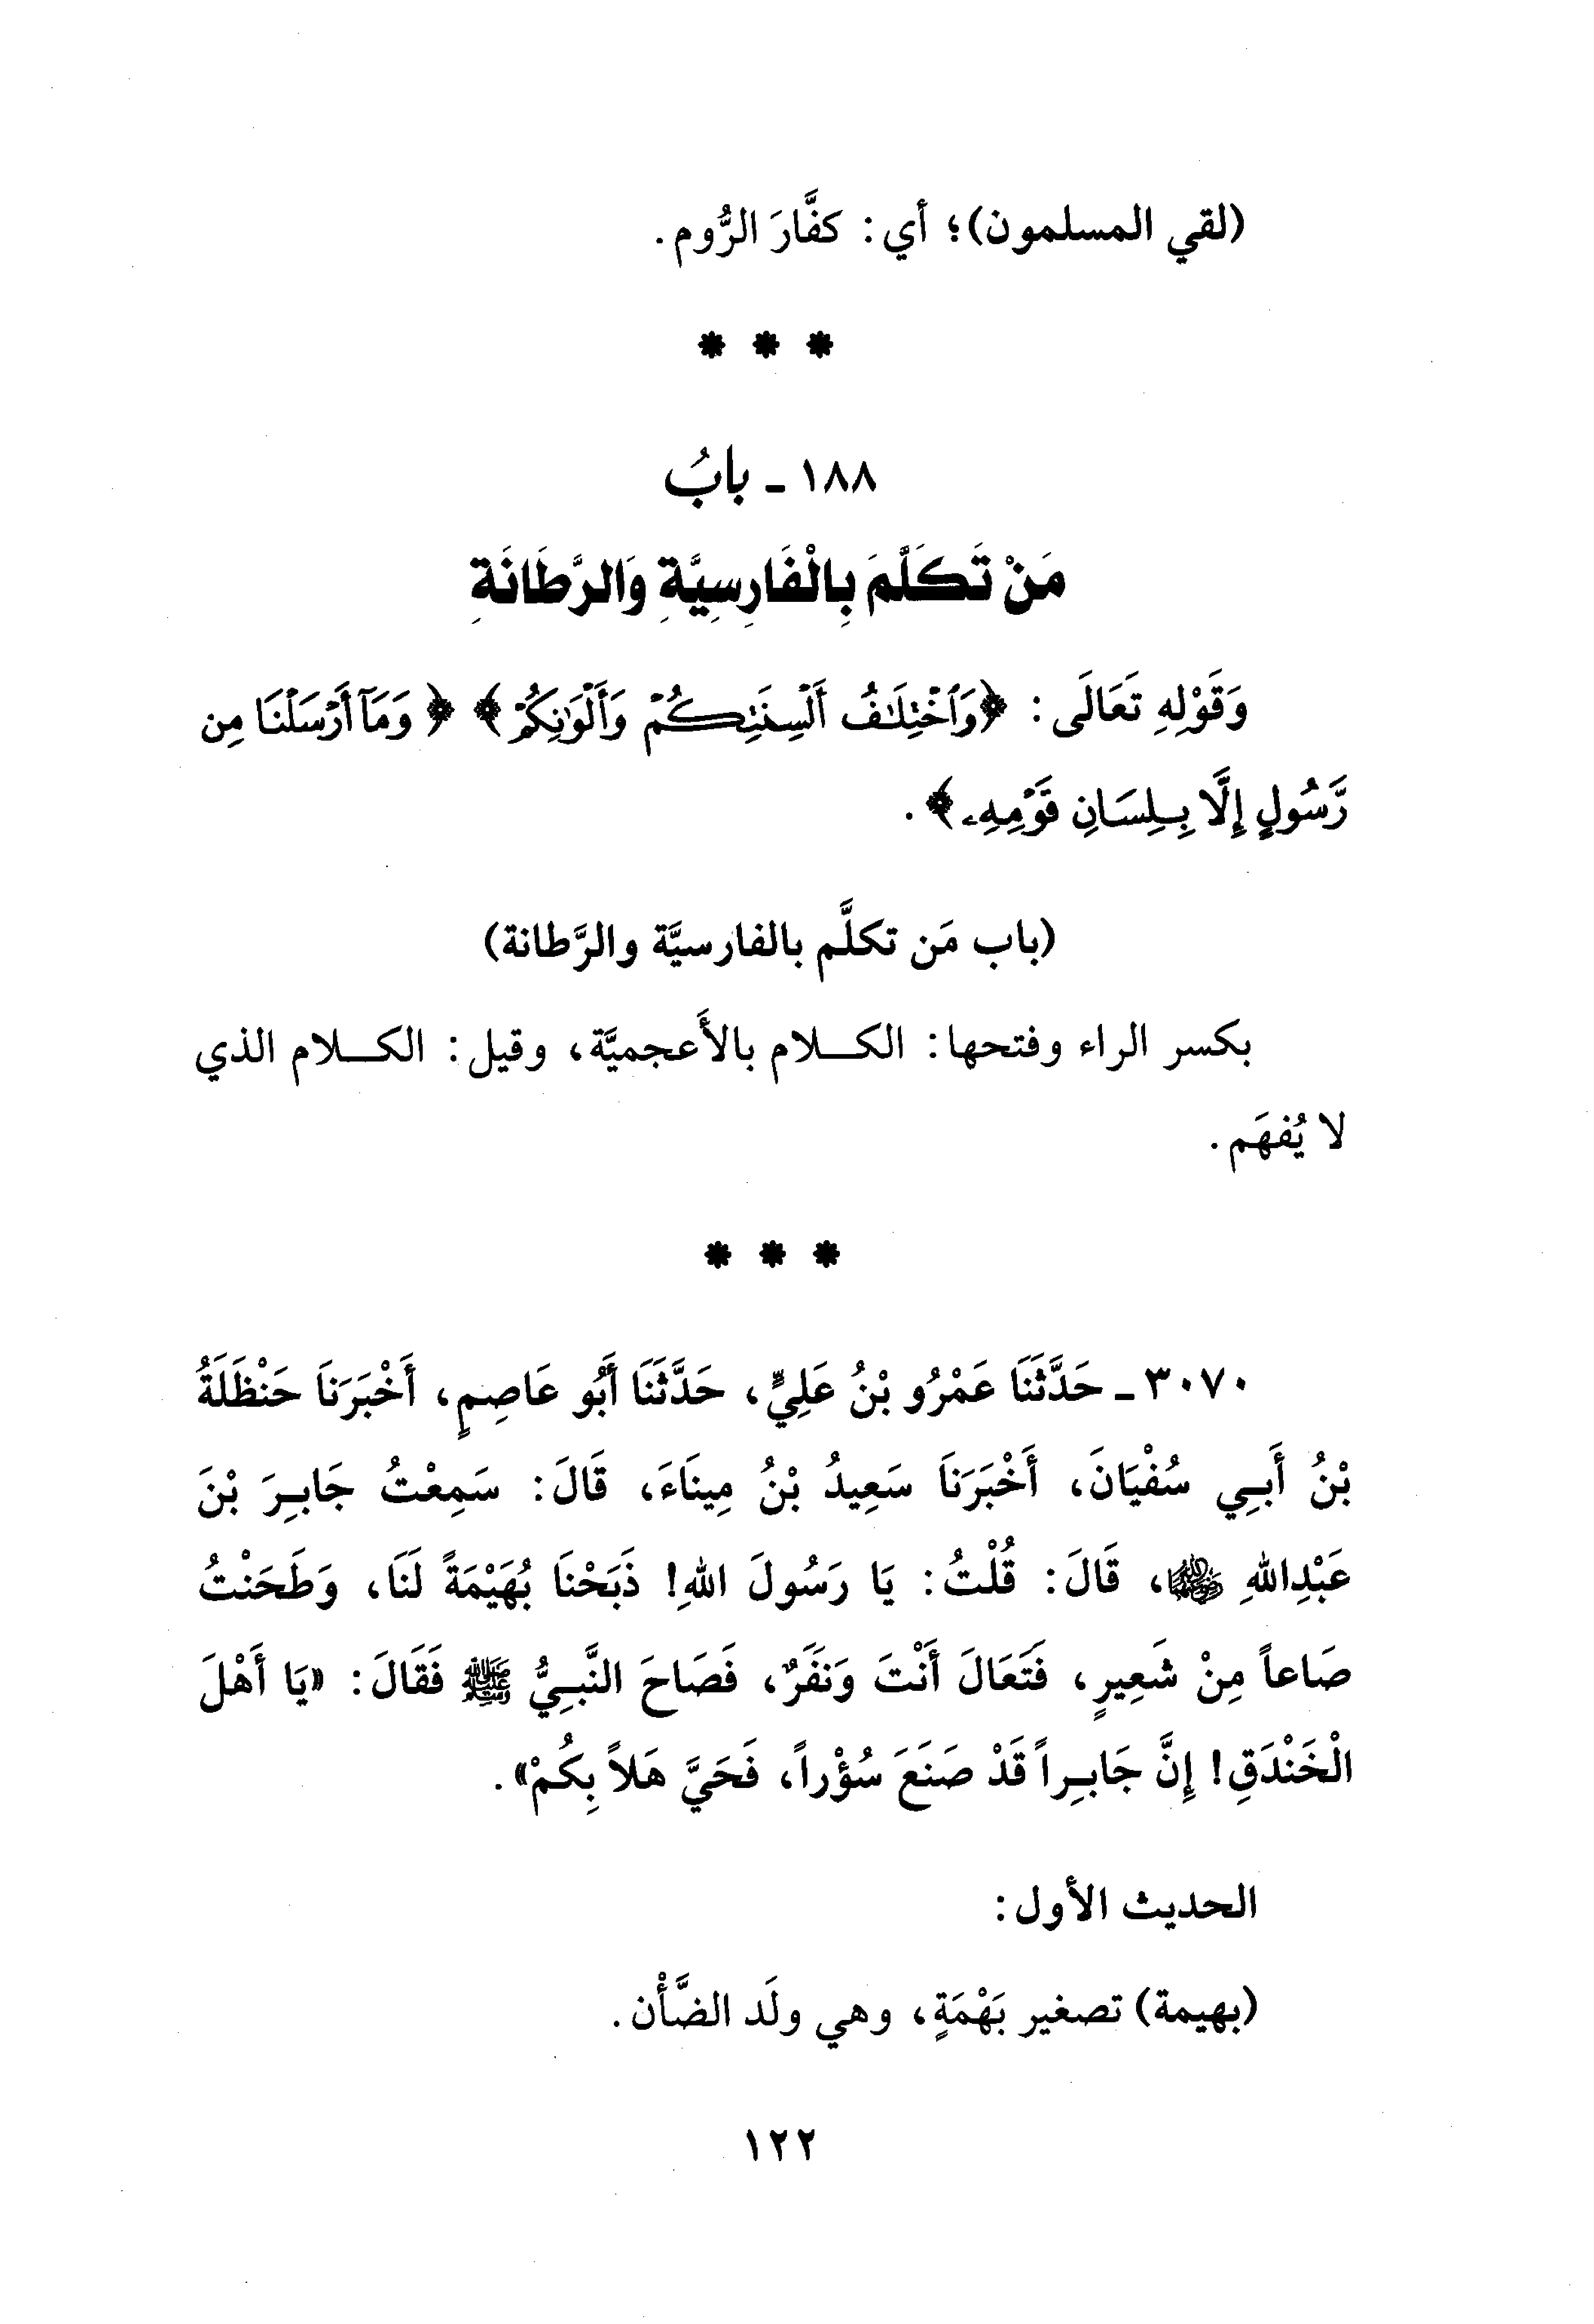 (لقي المسلمون)؛ أي: كفَّارَ الرُّوم.
* * *
١٨٨ ـ بابُ
مَنْ تَكَلَّمَ بِالْفَارِسِيَّةِ وَالرَّطَانَةِ
وَقَوْلِهِ تَعَالَى: ﴿وَٱخْتِلَٰفُ أَلْسِنَتِكُمْ وَأَلْوَٰنِكُمْ﴾ ﴿وَمَآ أَرْسَلْنَا مِن
رَّسُولٍ إِلَّا بِلِسَانِ قَوْمِهِۦ﴾.
(باب مَن تكلَّم بالفارسيَّة والرَّطانة)
بكسر الراء وفتحها: الكلام بالأَعجميَّة، وقيل: الكلام الذي
لا يُفهَم.
* * *
٣٠٧٠ ـ حَدَّثَنَا عَمْرُو بْنُ عَلِيٍّ، حَدَّثَنَا أَبُو عَاصِمٍ، أَخْبَرَنَا حَنْظَلَةُ
بْنُ أَبِي سُفْيَانَ، أَخْبَرَنَا سَعِيدُ بْنُ مِينَاءَ، قَالَ: سَمِعْتُ جَابِرَ بْنَ
عَبْدِاللهِ رضي الله عنهما، قَالَ: قُلْتُ: يَا رَسُولَ اللهِ! ذَبَحْنَا بُهَيْمَةً لَنَا، وَطَحَنْتُ
صَاعاً مِنْ شَعِيرٍ، فَتَعَالَ أَنْتَ وَنَفَرٌ، فَصَاحَ النَّبِيُّ ﷺ فَقَالَ: «يَا أَهْلَ
الْخَنْدَقِ! إِنَّ جَابِراً قَدْ صَنَعَ سُؤْراً، فَحَيَّ هَلاً بِكُمْ».
الحديث الأول:
(بهيمة) تصغير بَهْمَةٍ، وهي ولَد الضَّأْن.
١٢٢